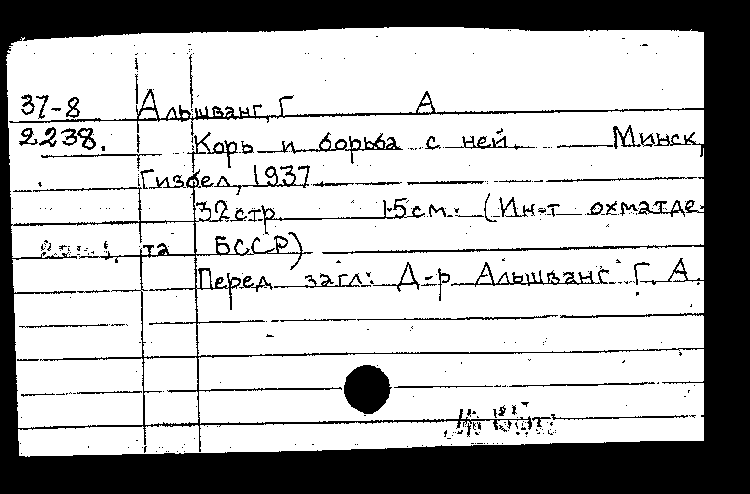 37-8 Альшванг, Г А
2238. Корь и борьба с ней. Минск,
Гизбел, 1937.
32 стр. 15 см. (Ин-т охматде-
та БССР)
Перед загл: Д-р Альшванг Г. А.